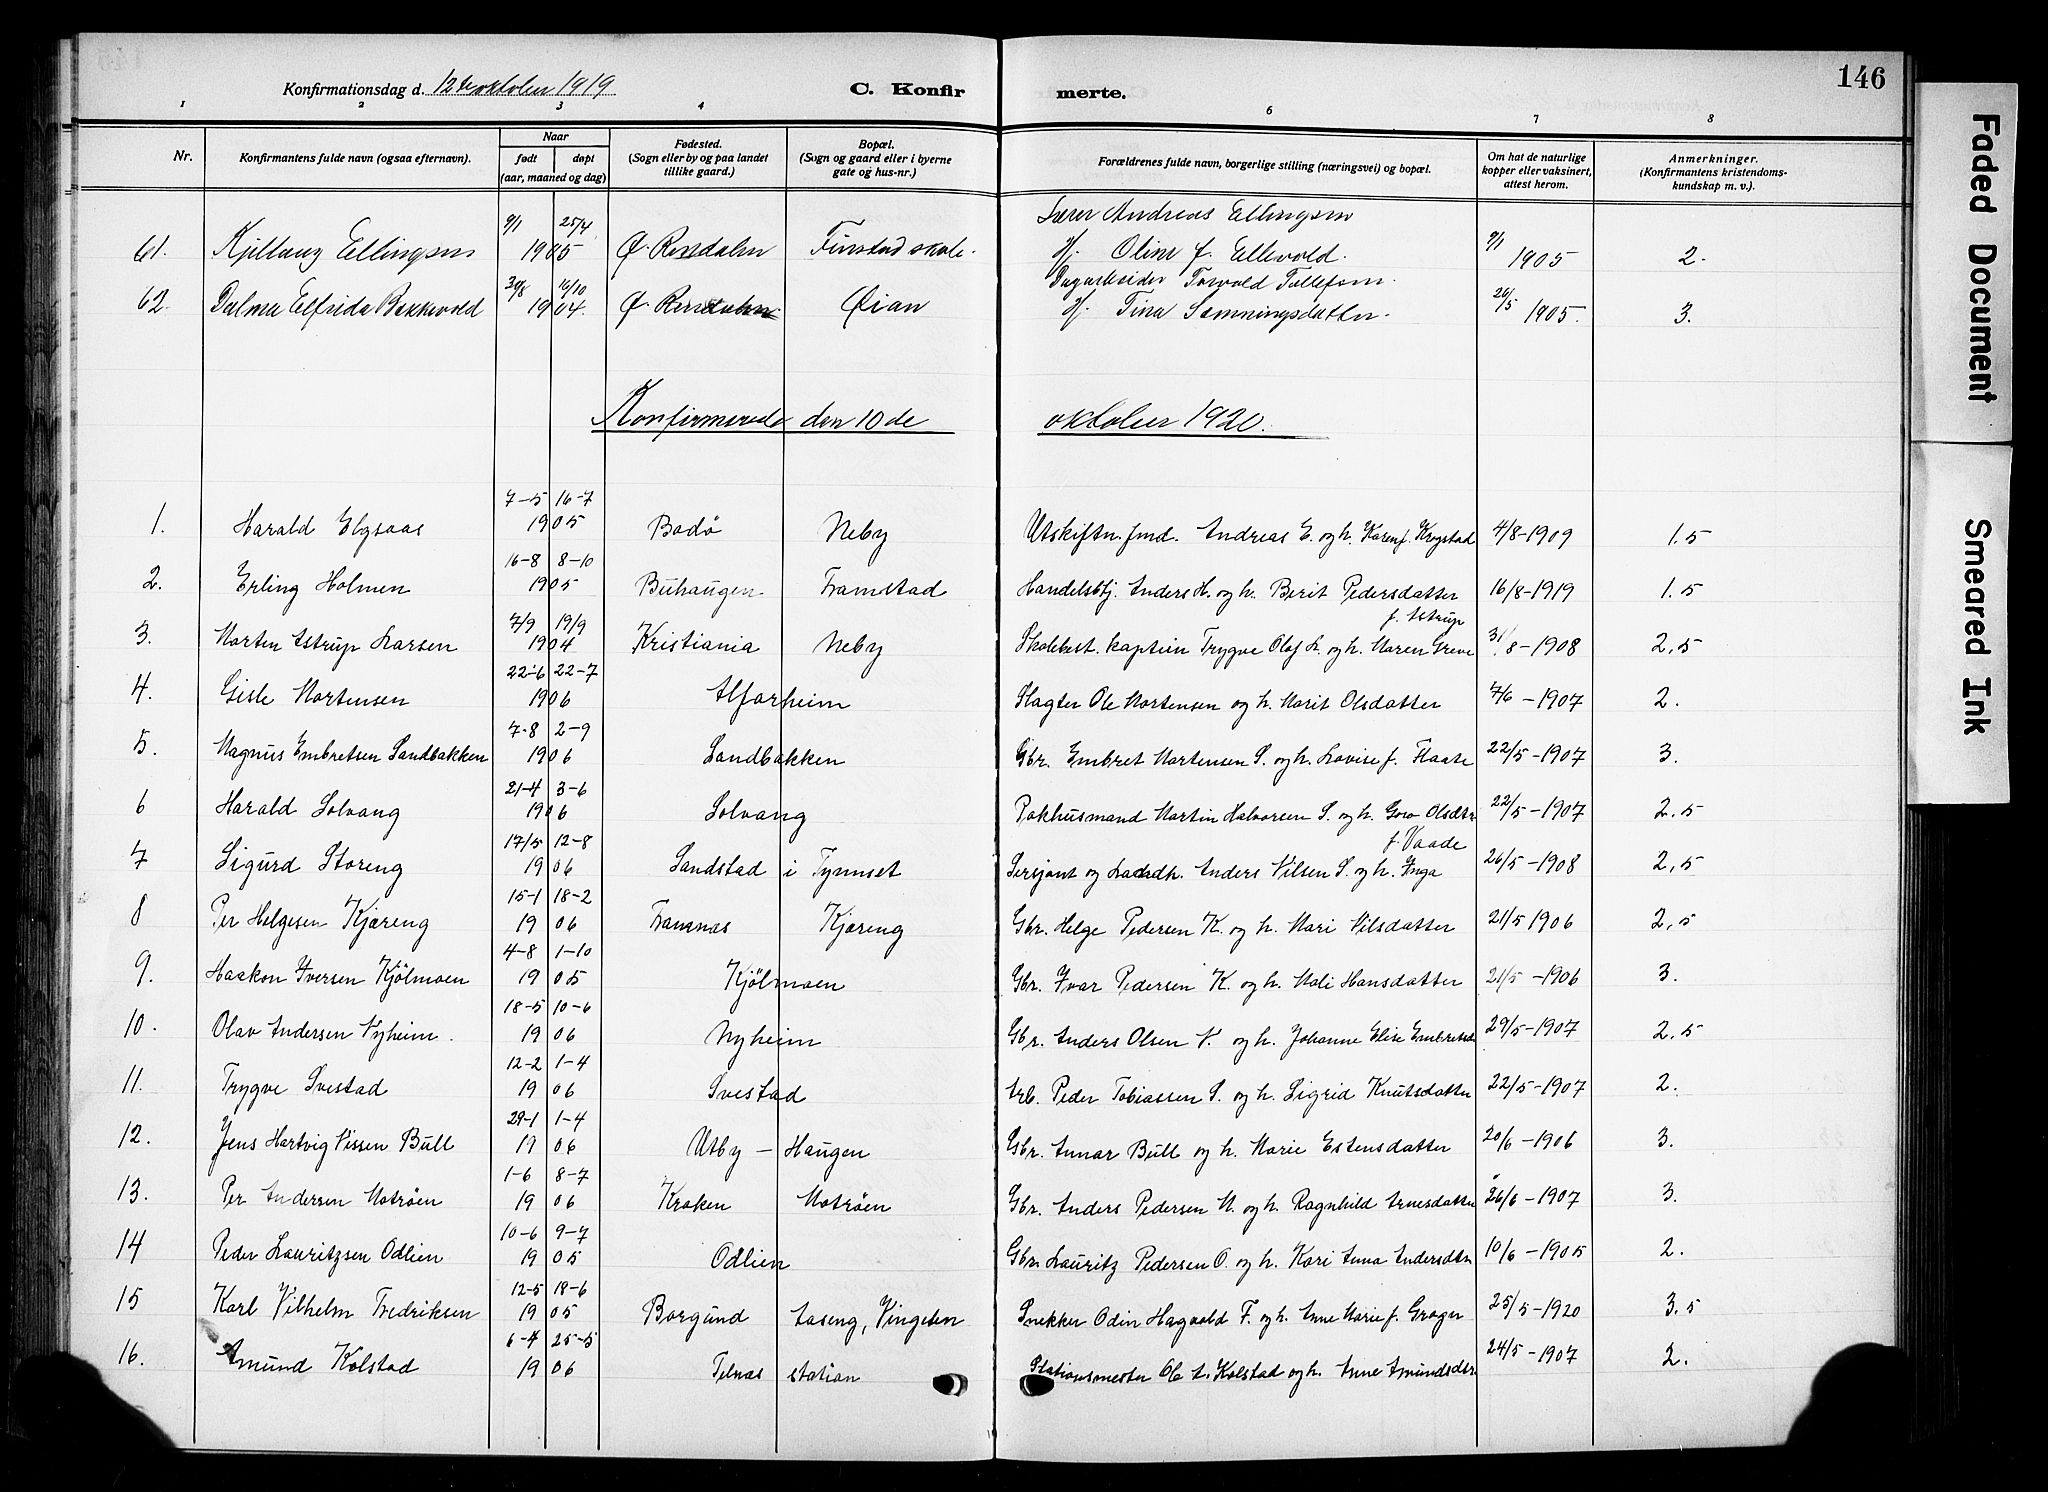 146
Konfirmationsdag d. 12te oktober 1919
C. Konfirmerte.
1 2 3 4 6 7 8
Nr. Konfirmantens fulde navn (ogsaa efternavn). Naar født døpt (aar, maaned og dag) Fødested. (Sogn eller by og paa landet tillike gaard.) Bopæl. (Sogn og gaard eller i byerne gate og hus-nr.) Forældrenes fulde navn, borgerlige stilling (næringsvei) og bopæl. Om hat de naturlige kopper eller vaksinert, attest herom. Anmerkninger. (Konfirmantens kristendomskundskap m. v.).
61. Kjellaug Ellingsen 9/1 25/4 1905 Ø. Rendalen Finstad skole. Lærer Andreas Ellingsen Hj. Oline f. Ellevold. 9/1 1905 2.
62. Dalma Elfrida Bakkevold 30/8 16/10 1904. Ø. Rendalen Øian Dagarbeider Torvald Tollefsen. Hj. Tina Sæmningsdatter. 26/5 1905. 3.
Konfirmerede den 10de oktober 1920.
1. Harald Elgsaas 7-5 16-7 1905 Bodø Neby Utskiftn.fmd. Andreas E. og h. Karen f. Krogstad 4/8-1909 1.5
2. Erling Holmen 16-8 8-10 1905 Buhaugen Tramstad Handelsbtj. Anders H. og h. Berit Pedersdatter 16/8-1919 1.5
3. Morten Astrup Larsen 7/9 19/9 1904 Kristiania Neby Skolebest. kaptein Trygve Olaf L. og h. Maren Greve f. Astrup 31/8-1908 2,5
4. Gisle Mortensen 22-6 22-7 1906 Alfarheim Slagter Ole Mortensen og h. Marit Olsdatter 7/6-1907 2.
5. Magnus Embretsen Sandbakken 7-8 2-9 1906 Sandbakken Gbr. Embret Mortensen S. og h. Lovise f. Flaate 22/5-1907 3.
6 Harald Solvang 21-4 3-6 1906 Solvang Pakhusmand Martin Halvorsen S. og h. Goro Olsdtr 22/5-1907 2.5
7 Sigurd Storeng 17/5 12-8 1906 Sandstad i Tynnset Sersjant og Landh. Anders Nilsen S. og h. Inga f. Vaade 26/5-1908 2,5
8 Per Helgesen Kjæreng 15-1 18-2 1906 Fansnas Kjæreng Gbr. Helge Pedersen K. og h. Mari Nilsdatter 21/5 1906 2,5
9. Haakon Iversen Kjölmoen 4-8 1-10 1905 Kjölmoen Gbr. Ivar Pedersen K. og h. Mali Hansdatter 21/5-1906 3.
10. Olav Andersen Nyheim. 18-5 10-6 1906 Nyheim Gbr. Anders Olsen N. og h. Johanne Elise Embretsd 29/5-1907 2.5
11. Trygve Svestad 12-2 1-4 1906 Svestad Arb. Peder Tobiassen S. og h. Sigrid Knutsdatter 22/5-1907 2.
12. Jens Hartvig Nissen Bull 29-1 1-4 1906 Utby - Haugen Gbr. Annar Bull og h. Marie Estensdatter 20/6-1906 3.
13. Per Andersen Motrøen 1-6 8-7 1906 Kroken Motrøen Gbr. Anders Pedersen M. og h. Ragnhild Arnesdatter 26/6-1907 3.
14 Peder Lauritzsen Odlien 10-6 9-7 1905 Odlien Gbr. Lauritz Pedersen O. og h. Kari Anna Andersdtr 10/6-1905 2.
15 Karl Vilhelm Fredriksen 12-5 18-6 1905 Borgund Aaseng, Vingelen Snekker Odin Hagvald F. og h. Anne Marie f. Groger 25/5-1920 3.5
16. Amund Kolstad 6-4 25-5 1906 Telnæs station Stationsmester Ole A. Kolstad og h. Anne Amundsdtr. 24/5-1907 2.
Faded Document
Smeared Ink